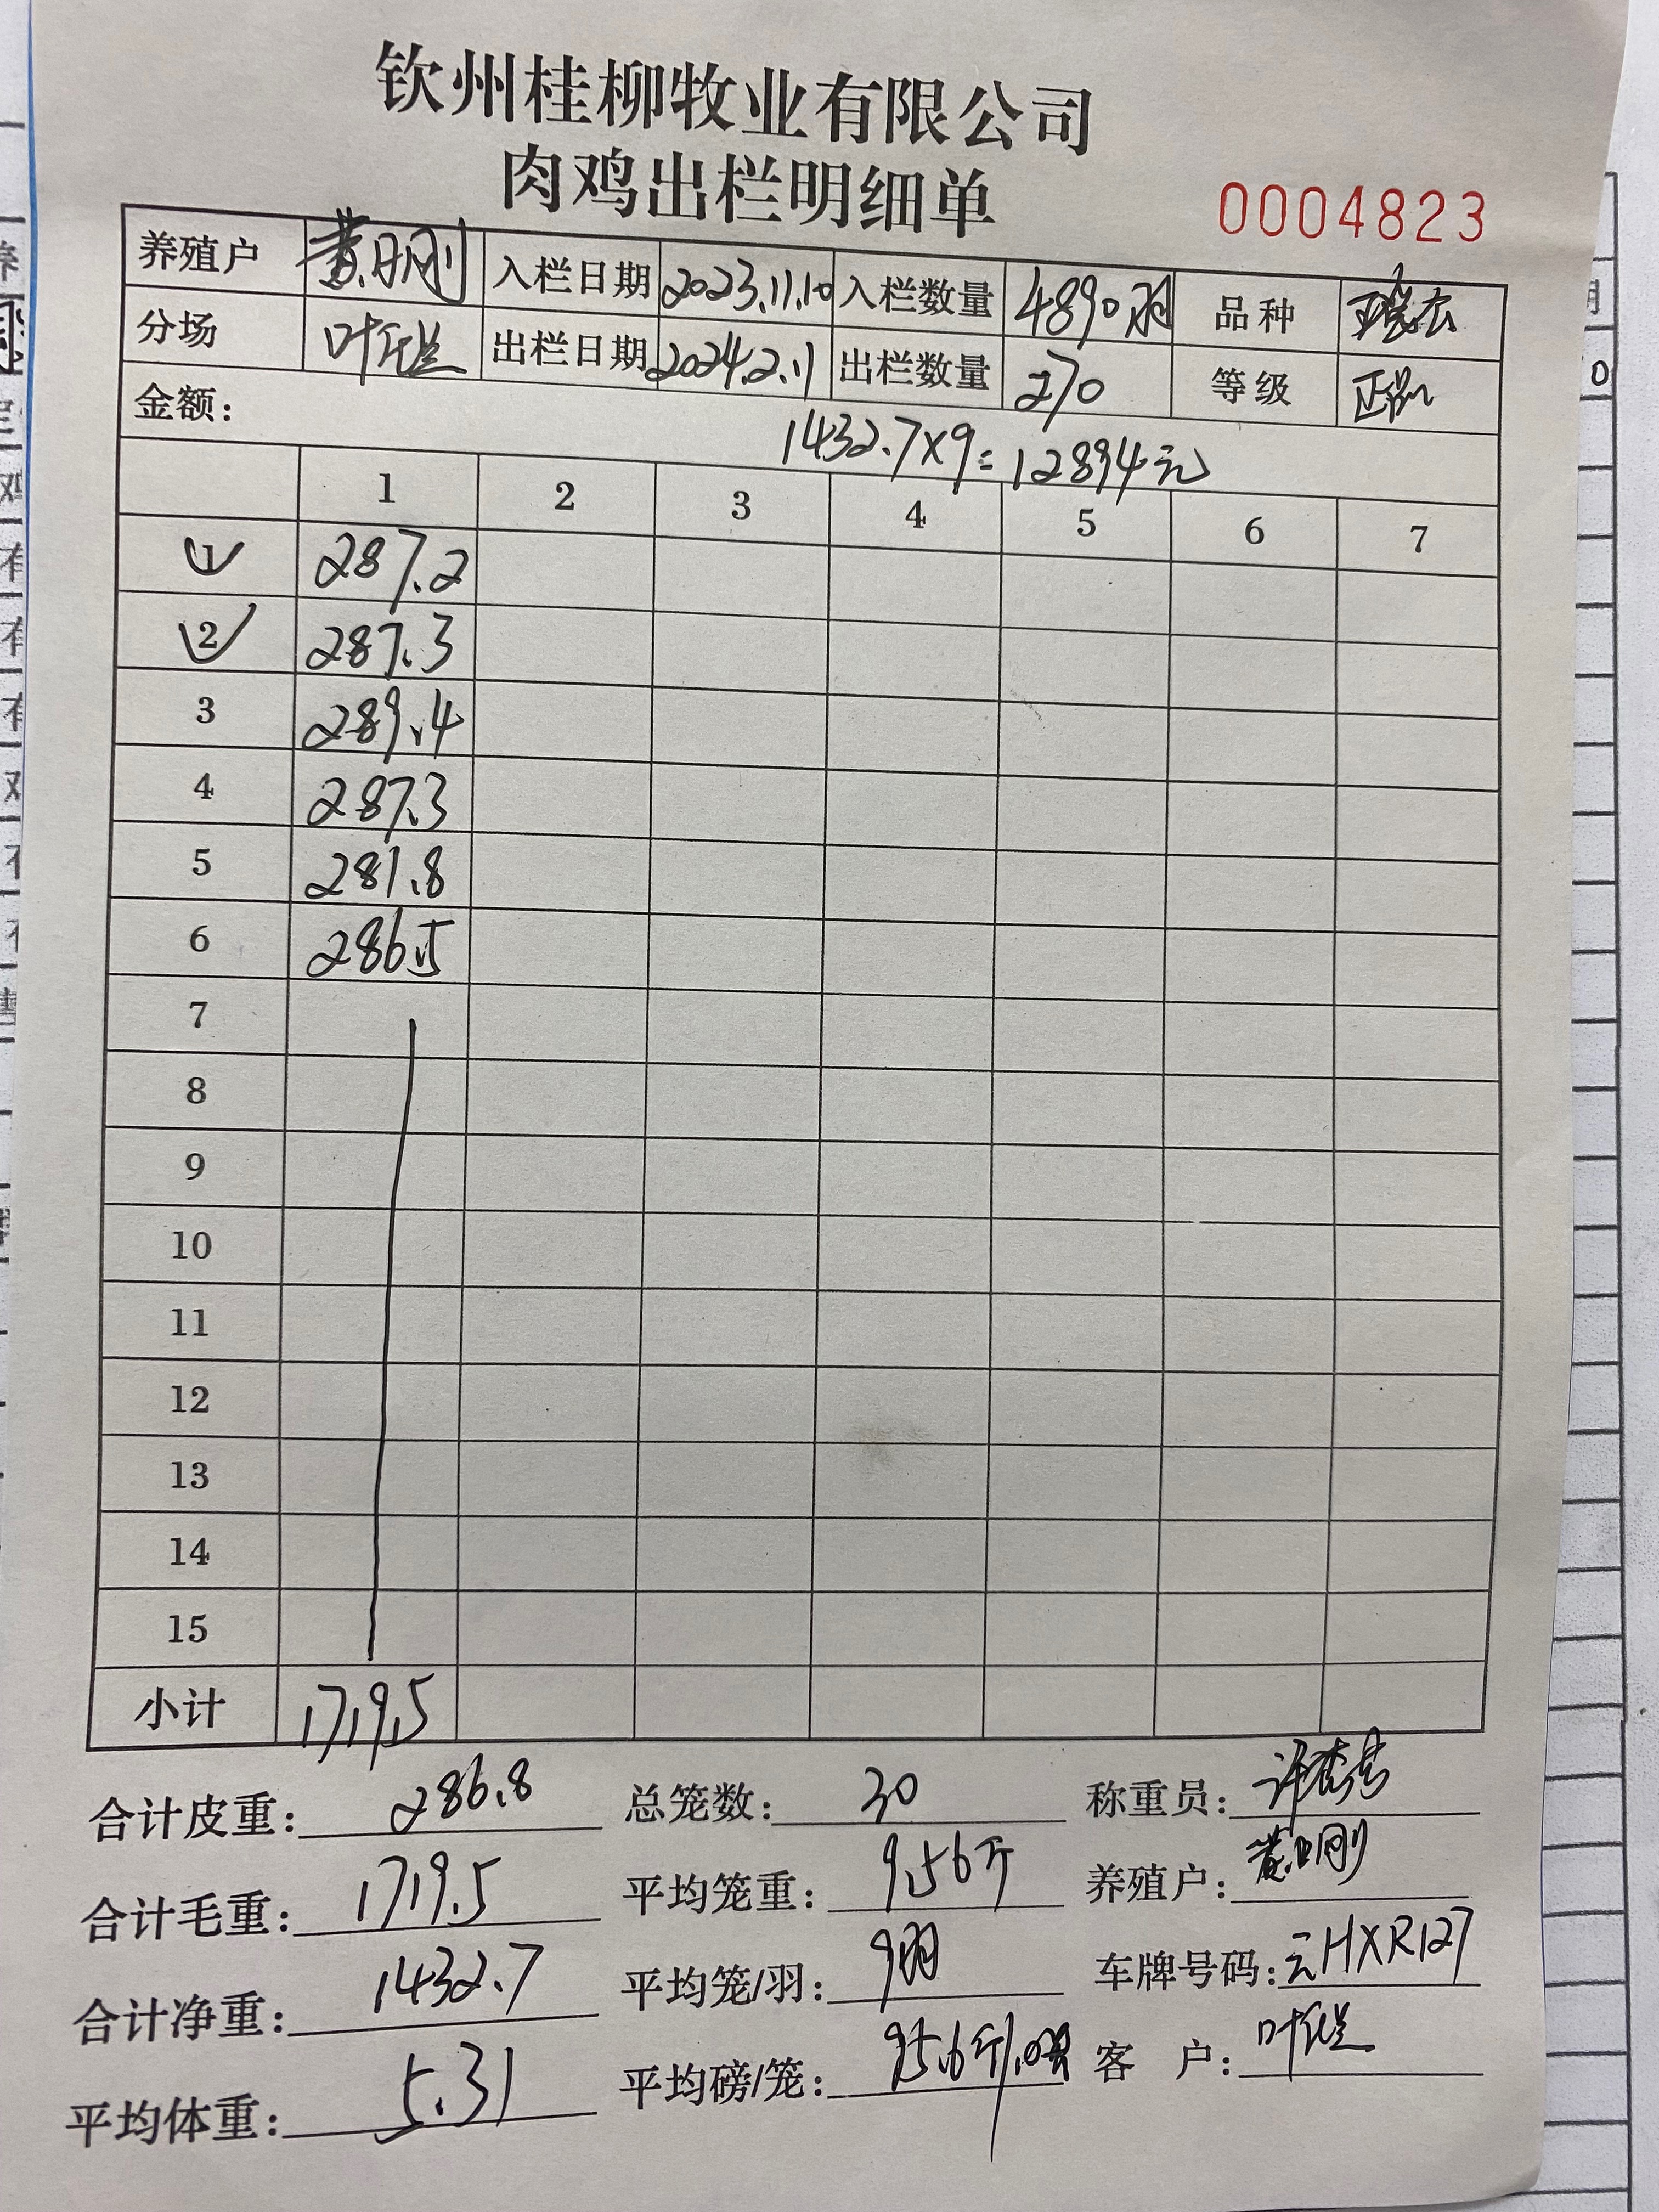 钦州桂柳牧业有限公司
肉鸡出栏明细单
0004823
养殖户 黄日刚 入栏日期 2023.11.10 入栏数量 4890羽 品种
分场 叶 出栏日期 2024.2.11 出栏数量 270 等级 正品
金额: 1432.7×9=12894元
1 2 3 4 5 6 7
1 287.2
2 287.3
3 289.4
4 287.3
5 281.8
6 286.5
7
8
9
10
11
12
13
14
15
小计 1719.5
合计皮重: 286.8 总笼数: 30 称重员: 许
合计毛重: 1719.5 平均笼重: 9.56斤 养殖户: 黄日刚
合计净重: 1432.7 平均笼/羽: 9羽 车牌号码: 云HXR127
平均体重: 5.31 平均磅/笼: 95.6斤 客 户: 叶